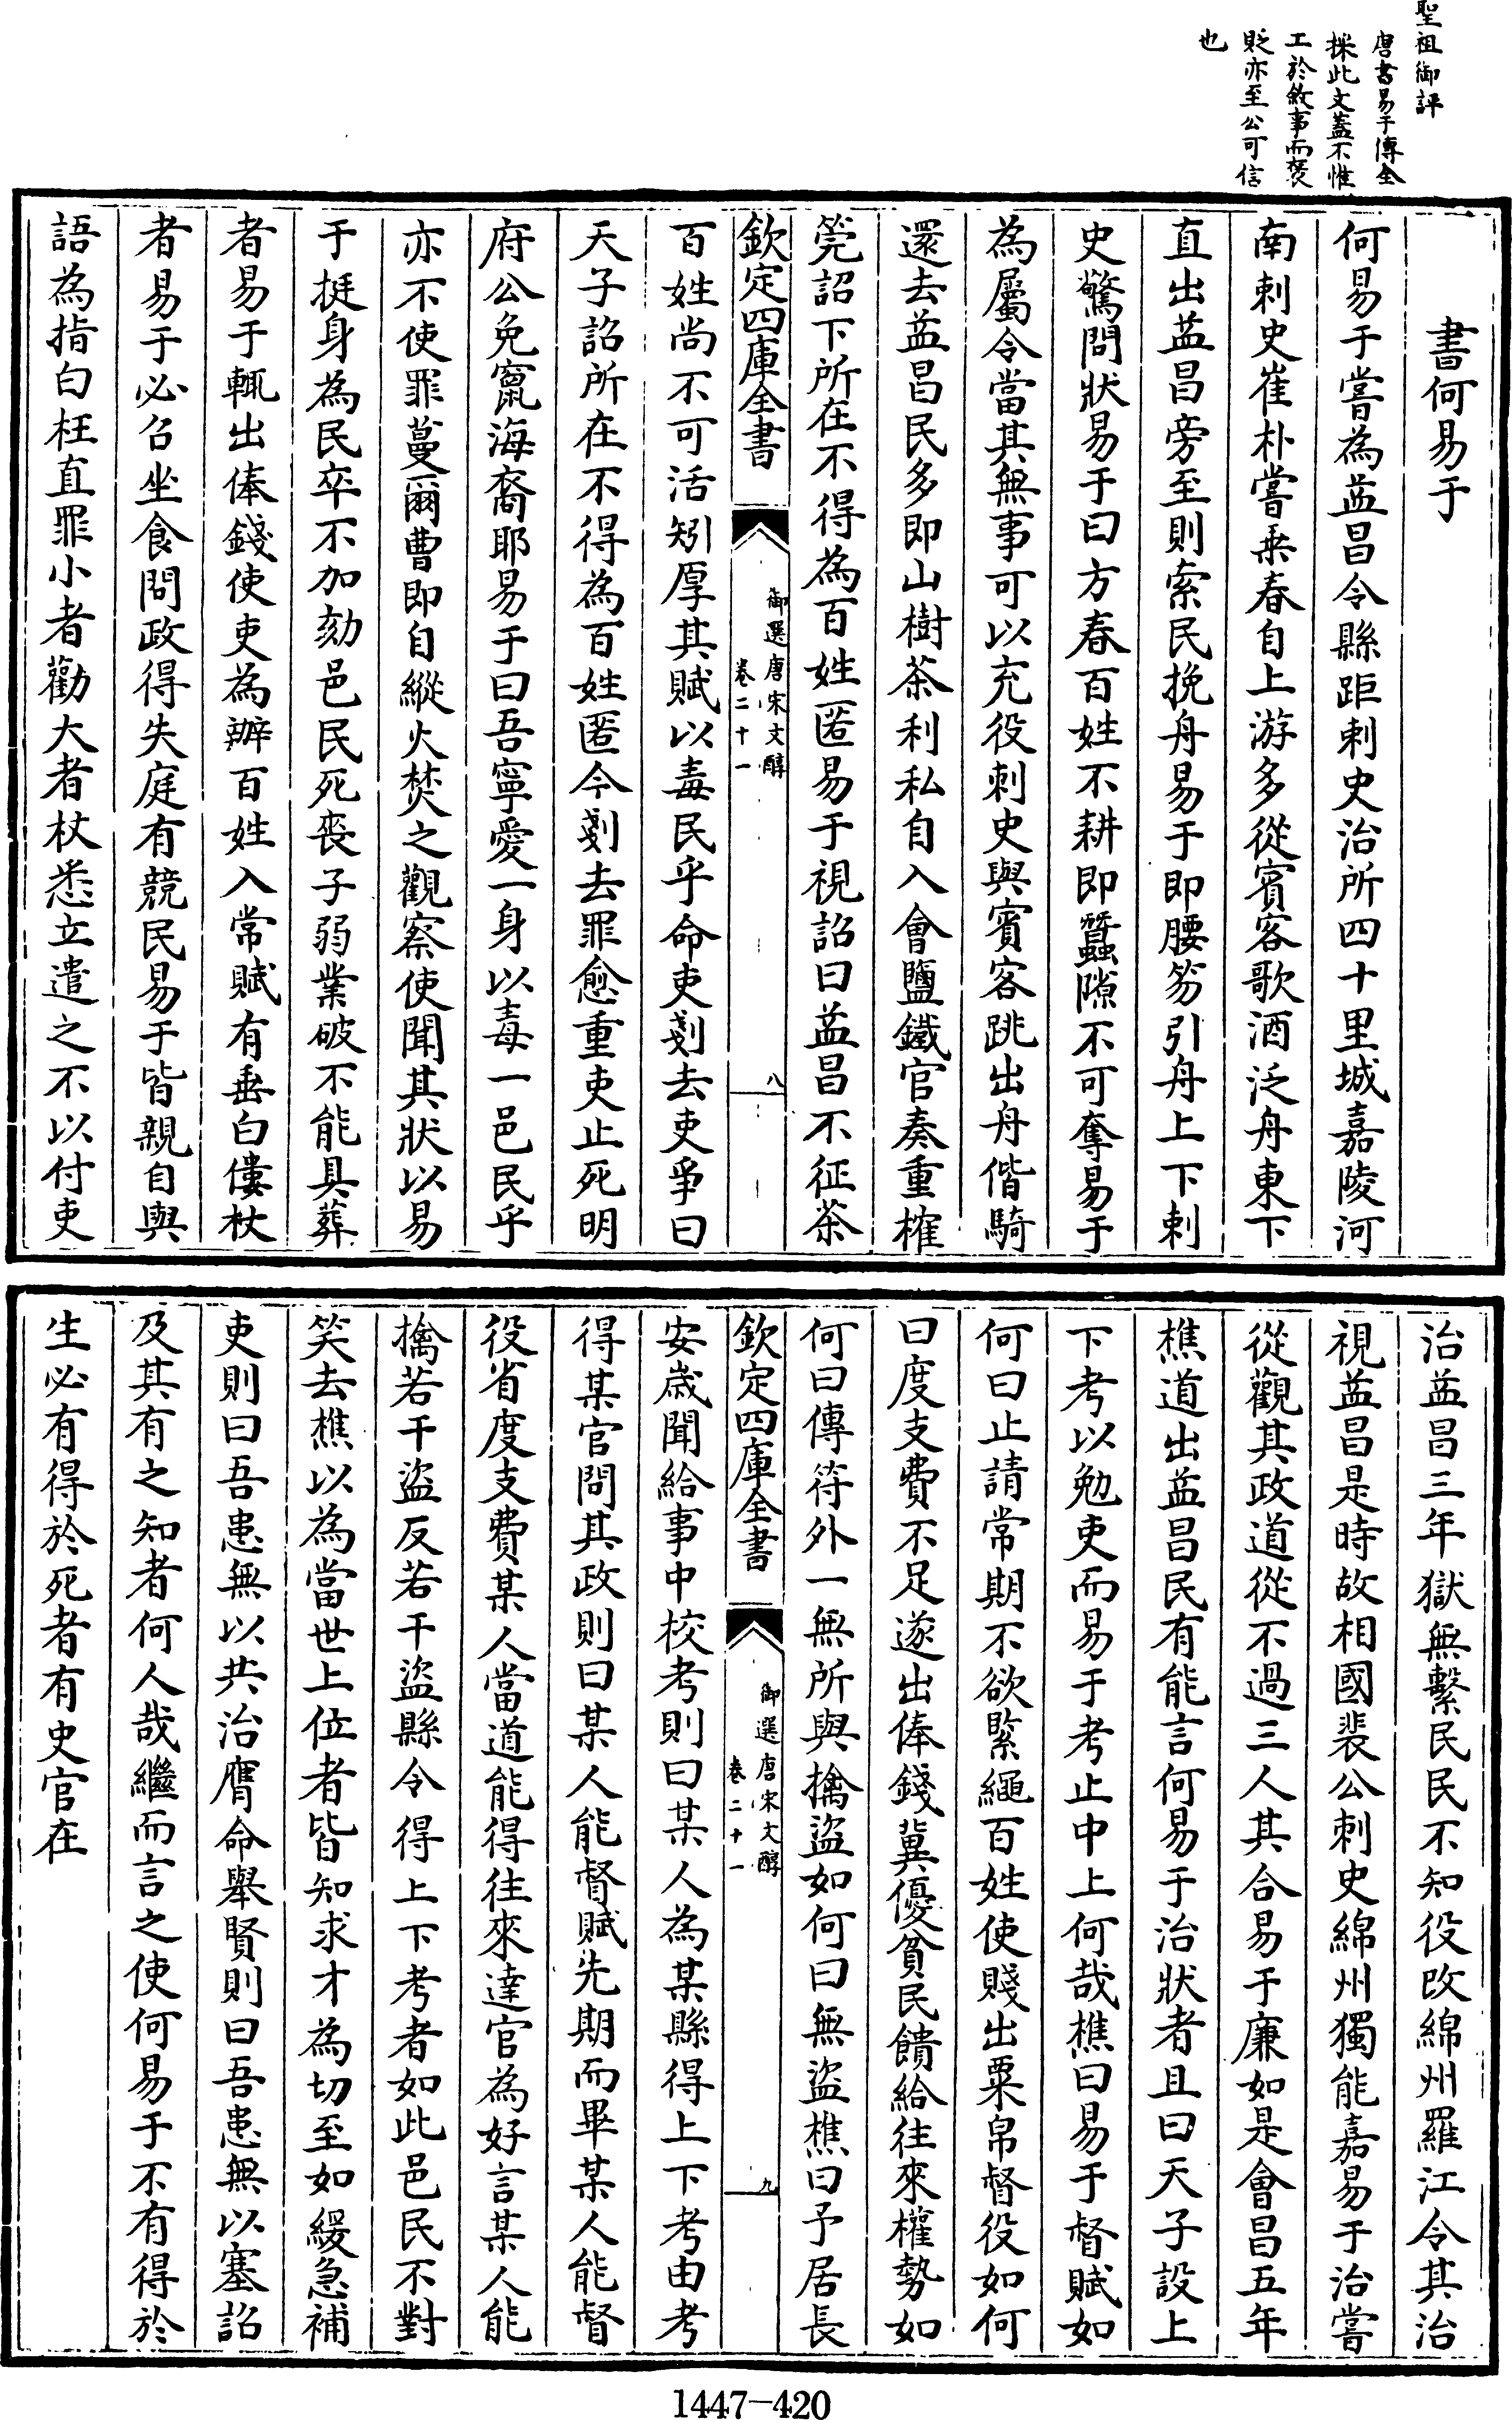 聖祖御評
唐書易于傳全
採此文蓋不惟
工於敘事而褒
貶亦至公可信
也
書何易于
何易于嘗為益昌令縣距刺史治所四十里城嘉陵河
南刺史崔朴嘗乗春自上游多從賓客歌酒泛舟東下
直出益昌旁至則索民挽舟易于即腰笏引舟上下刺
史驚問狀易于曰方春百姓不耕即蠶隙不可奪易于
為屬令當其無事可以充役刺史與賓客跳出舟偕騎
還去益昌民多即山樹茶利私自入會鹽鐵官奏重榷
筦詔下所在不得為百姓匿易于視詔曰益昌不征茶
欽定四庫全書
御選唐宋文醇
卷二十一
八
百姓尚不可活矧厚其賦以毒民乎命吏剗去吏爭曰
天子詔所在不得為百姓匿今剗去罪愈重吏止死明
府公免竄海裔耶易于曰吾寧愛一身以毒一邑民乎
亦不使罪蔓爾曹即自縱火焚之觀察使聞其狀以易
于挺身為民卒不加劾邑民死喪子弱業破不能具葬
者易于輒出俸錢使吏為辦百姓入常賦有垂白僂杖
者易于必召坐食問政得失庭有競民易于皆親自與
語為指白枉直罪小者勸大者杖悉立遣之不以付吏
治益昌三年獄無繫民民不知役改綿州羅江令其治
視益昌是時故相國裴公刺史綿州獨能嘉易于治嘗
從觀其政道從不過三人其合易于廉如是會昌五年
樵道出益昌民有能言何易于治狀者且曰天子設上
下考以勉吏而易于考止中上何哉樵曰易于督賦如
何曰止請常期不欲緊繩百姓使賤出粟帛督役如何
曰度支費不足遂出俸錢冀優貧民饋給往來權勢如
何曰傳符外一無所與擒盜如何曰無盜樵曰予居長
欽定四庫全書
御選唐宋文醇
卷二十一
九
安歲聞給事中校考則曰某人為某縣得上下考由考
得某官問其政則曰某人能督賦先期而畢某人能督
役省度支費某人當道能得往來達官為好言某人能
擒若干盜反若干盜縣令得上下考者如此邑民不對
笑去樵以為當世上位者皆知求才為切至如緩急補
吏則曰吾患無以共治膺命舉賢則曰吾患無以塞詔
及其有之知者何人哉繼而言之使何易于不有得於
生必有得於死者有史官在
1447-420